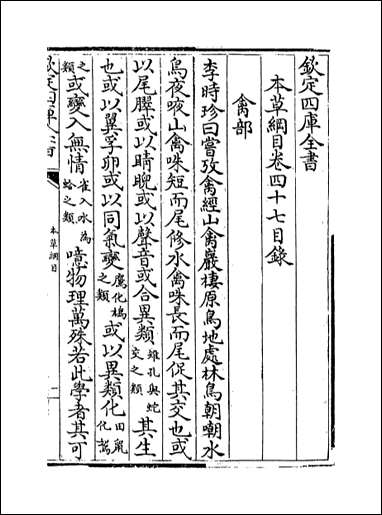 欽定四庫全書
本草綱目卷四十七目錄
禽部
李時珍曰嘗攷禽經山禽巖棲原鳥地處林鳥朝嘲水
鳥夜㖡山禽咮短而尾修水禽咮長而尾促其交也或
以尾臎或以睛睨或以聲音或合異類雉孔與蛇交之類其生
也或以翼孚卵或以同氣變鷹化鳩之類或以異類化田鼠化鴽
之類或變入無情雀入水為蛤之類噫物理萬殊若此學者其可
欽定四庫全書
本草綱目
一